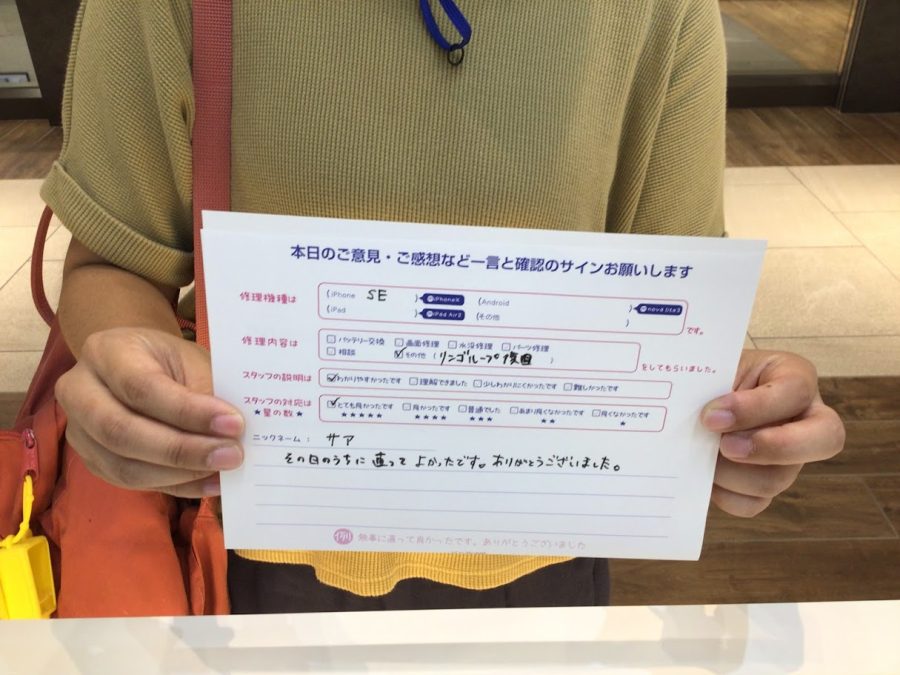 本日のご意見・ご感想など一言と確認のサインお願いします
修理機種は (iPhone SE )●iPhoneX (Android )●nova lite3
(iPad )●iPad Air3 (その他 ) です。
修理内容は □バッテリー交換 □画面修理 □水没修理 □パーツ修理
□相談 ☑その他 (リンゴループ復旧) をしてもらいました。
スタッフの説明は ☑わかりやすかったです □理解できました □少しわかりにくかったです □難しかったです
スタッフの対応は ☑とても良かったです □良かったです □普通でした □あまり良くなかったです □良くなかったです
★星の数★ ★★★★★ ★★★★ ★★★ ★★ ★
ニックネーム: サア
その日のうちに直ってよかったです。ありがとうございました。
例 無事に直って良かったです。ありがとうございました